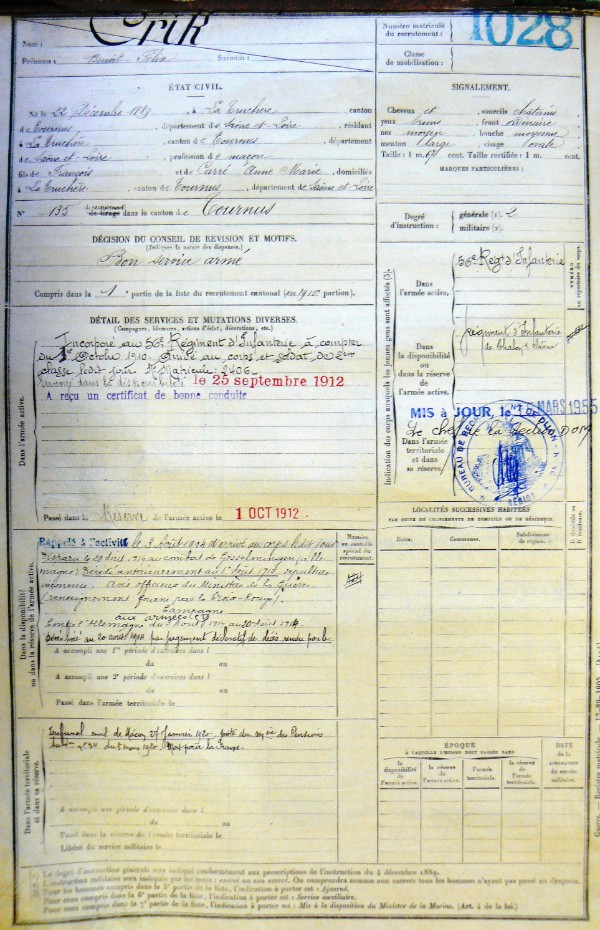 Nom :
Crik
Prénoms : Benoît - Félix Surnom :
Numéro matricule
du recrutement :
1028
Classe
de mobilisation :
ÉTAT CIVIL.
Né le 22 Décembre 1889, à La Truchère canton
de Tournus, département de Saône et Loire, résidant
à La Truchère, canton de Tournus, département
de Saône et Loire, profession de maçon
fils de François et de Carré Anne Marie, domiciliés
à La Truchère, canton de Tournus, département de Saône et Loire
N° 135 de tirage dans le canton de Tournus
SIGNALEMENT.
Cheveux et sourcils châtains
yeux bruns, front ordinaire
nez moyen, bouche moyenne
menton large, visage ovale
Taille : 1 m. 67 cent. Taille rectifiée : 1 m. cent.
MARQUES PARTICULIÈRES :
Degré
d'instruction :
générale (1). 2
militaire (2).
DÉCISION DU CONSEIL DE REVISION ET MOTIFS.
(Indiquer la nature des dispenses.)
Bon service armé
Compris dans la 1e partie de la liste du recrutement cantonal
DÉTAIL DES SERVICES ET MUTATIONS DIVERSES.
(Campagnes, blessures, actions d'éclat, décorations, etc.)
Incorporé au 56e Régiment d'Infanterie à compter
du 1er Octobre 1910. Arrivé au corps et soldat de 2ème
classe ledit jour. Nº Matricule: 2406.
Envoyé dans la disponibilité le 25 septembre 1912
A reçu un certificat de bonne conduite
Dans l'armée active.
Passé dans la Réserve de l'armée active le 1 OCT 1912
Indication des corps auxquels les jeunes gens sont affectés (3).
NUMÉRO
au répertoire du corps.
Dans
l'armée active.
56e Régt d'Infanterie
Dans
la disponibilité
ou dans la réserve
de l'armée active.
Régiment d'Infanterie
de Chalon s/ Saône
MIS à JOUR, le MARS 1955
Le Chef de la Section
BUREAU DE DIJON
Dans
l'armée territoriale
et dans
sa réserve.
Dans la disponibilité
ou dans la réserve de l'armée active.
Rappelé à l'activité le 3 Août 1914 arrivé au corps ledit jour
Disparu le 20 Août 1914 au combat de Gosselmingen (Alle-
magne) Décédé antérieurement au
Avis officieux du Ministre de la Guerre
(renseignement fourni par la Croix-Rouge).
Campagne
aux armées
Contre l'Allemagne du 3 Août 1914 au 20 Août 1914
Décès fixé au 20 août 1914 par jugement déclaratif de décès rendu par le
Numéro
au contrôle
spécial du
recrutement.
A accompli une 1re période d'exercices dans l
du au
A accompli une 2e période d'exercices dans l
du au
Passé dans l'armée territoriale le
LOCALITÉS SUCCESSIVES HABITÉES
PAR SUITE DE CHANGEMENTS DE DOMICILE OU DE RÉSIDENCE.
Dates.
Communes.
Subdivisions
de région.
D. domicile ou
R. résidence.
Dans l'armée territoriale
et dans sa réserve.
Tribunal civil de Mâcon 27 Janvier 1920. du Mère des Pensions
Mort pour la France
A accompli une période d'exercices dans l
du au
Passé dans la réserve de l'armée territoriale le
Libéré du service militaire le
ÉPOQUE
À LAQUELLE L'HOMME DOIT PASSER DANS
la
disponibilité
de
l'armée active.
la réserve
de
l'armée active.
l'armée
territoriale.
la réserve
de
l'armée
territoriale.
DATE
de la
LIBÉRATION
du service
militaire.
(1) Le degré d'instruction générale sera indiqué conformément aux prescriptions de l'instruction du 4 décembre 1889.
L'instruction militaire sera indiquée par les mots : exercé ou non exercé. On comprendra comme non exercés tous les hommes n'ayant pas passé au drapeau.
Pour les hommes compris dans la 5e partie de la liste, l'indication à porter est : Ajourné.
Pour ceux compris dans la 6e partie de la liste, l'indication à porter est : Service auxiliaire.
Pour ceux compris dans la 7e partie de la liste, l'indication à porter est : Mis à la disposition du Ministre de la Marine. (Art. 4 de la loi.)